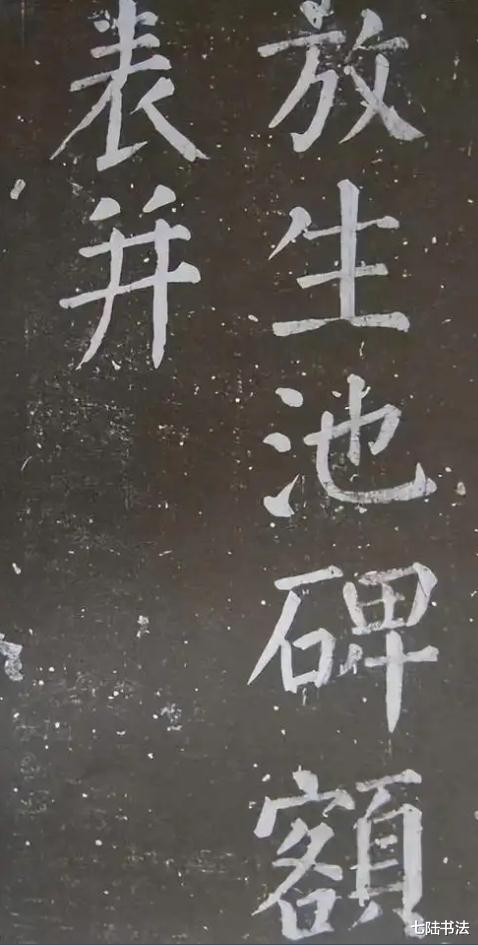 放生池碑額
表并
七陆书法